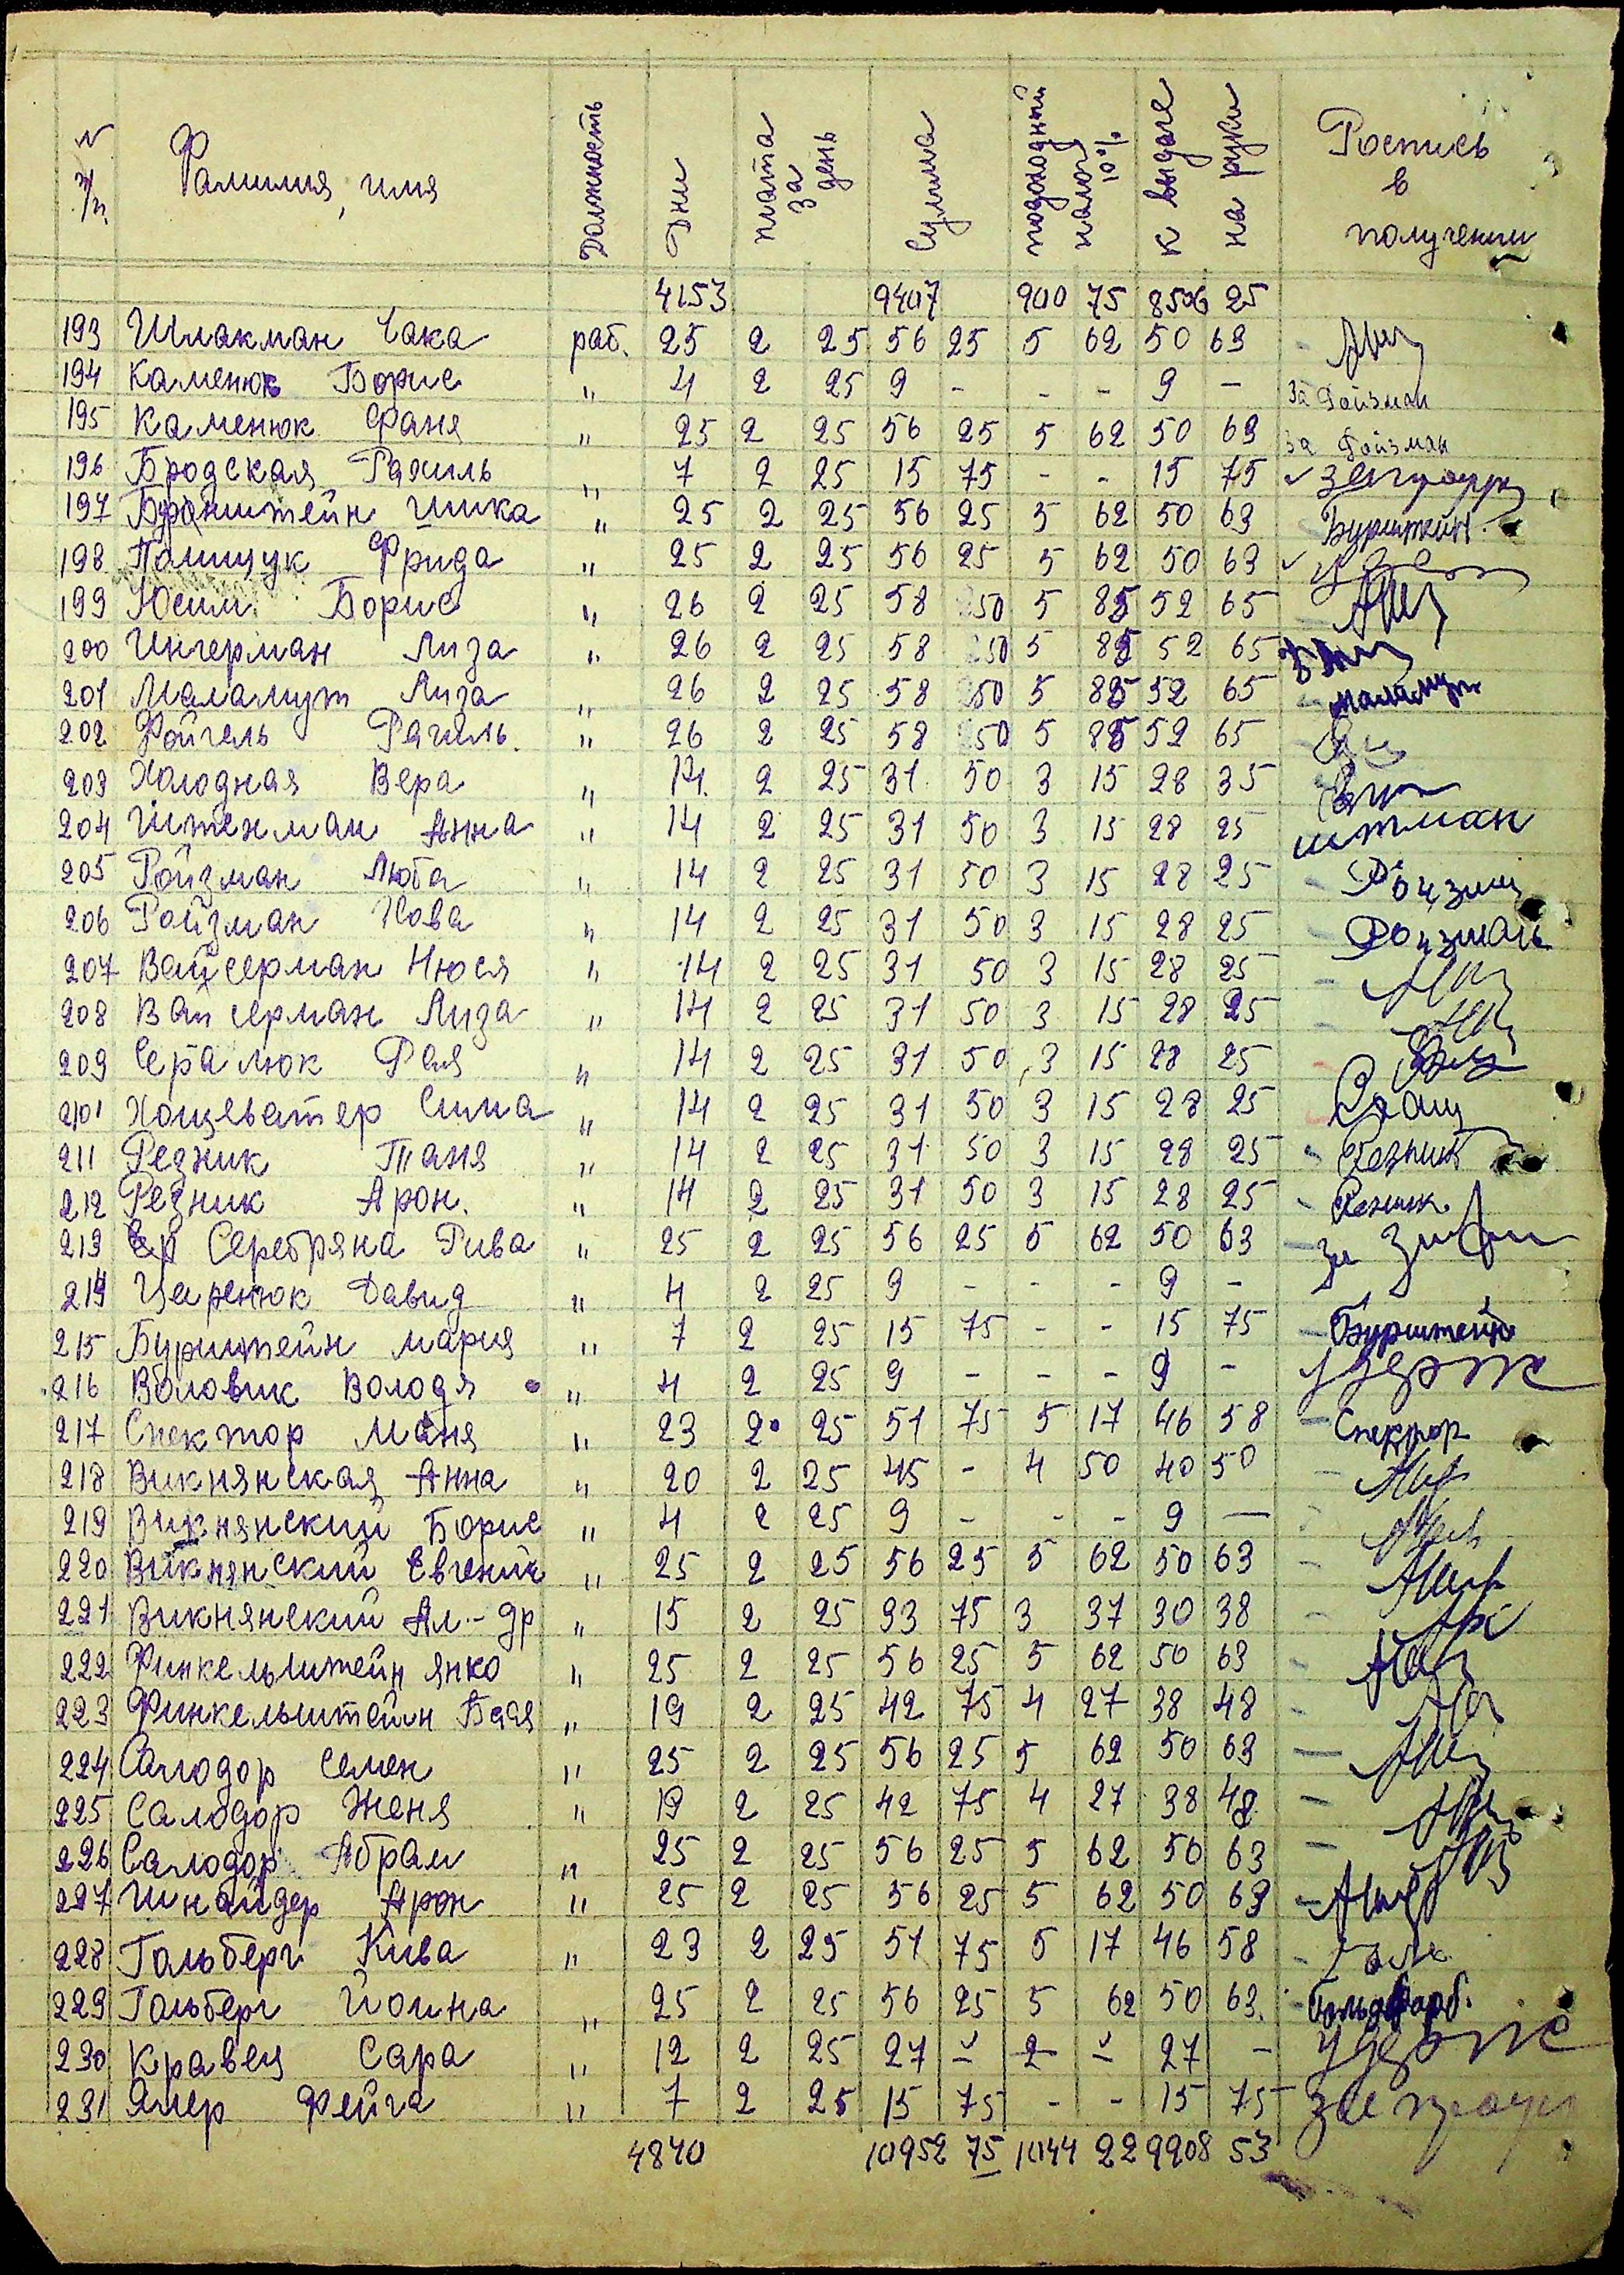 № п/п. Фамилия, имя Должность Дни плата за день Сумма подоходный налог 10% к выдаче на руки Роспись в получении
4153 9407 900 75 8506 25
193 Шлакман Чака раб. 25 2 25 56 25 5 62 50 63
194 Каменюк Борис " 4 2 25 9 - - - 9 - За Ройзман
195 Каменюк Фаня " 25 2 25 56 25 5 62 50 63 За Ройзман
196 Бродская Рахиль " 7 2 25 15 75 - - 15 75
197 Бронштейн Шика " 25 2 25 56 25 5 62 50 63 Бурштейн
198 Полищук Фрида " 25 2 25 56 25 5 62 50 63
199 Юсим Борис " 26 2 25 58 50 5 85 52 65
200 Ингерман Лиза " 26 2 25 58 50 5 85 52 65
201 Маламут Лиза " 26 2 25 58 50 5 85 52 65 маламут
202 Фойгель Рахиль. " 26 2 25 58 50 5 85 52 65
203 Холодная Вера " 14 2 25 31 50 3 15 28 35
204 Штенман Анна " 14 2 25 31 50 3 15 28 25 штман
205 Ройзман Люба " 14 2 25 31 50 3 15 28 25 Ройзман
206 Ройзман Хова " 14 2 25 31 50 3 15 28 25 Ройзман
207 Вайсерман Нюся " 14 2 25 31 50 3 15 28 25
208 Вайсерман Лиза " 14 2 25 31 50 3 15 28 25
209 Сералюк Рая " 14 2 25 31 50 3 15 28 25
210 Хощеватер Сима " 14 2 25 31 50 3 15 28 25
211 Резник Таня " 14 2 25 31 50 3 15 28 25 Резник
212 Резник Арон. " 14 2 25 31 50 3 15 28 25 Резник
213 Серебряна Рива " 25 2 25 56 25 5 62 50 63 За
214 Царенюк Давид " 4 2 25 9 - - - 9 -
215 Бурштейн Мария " 7 2 25 15 75 - - 15 75 Бурштейн
216 Воловик Володя " 4 2 25 9 - - - 9 - удерж
217 Спектор Маня " 23 2 25 51 75 5 17 46 58 Спектор
218 Викнянская Анна " 20 2 25 45 - 4 50 40 50
219 Викнянский Борис " 4 2 25 9 - - - 9 -
220 Викнянский Евгений " 25 2 25 56 25 5 62 50 63
221 Викнянский Ал-др " 15 2 25 33 75 3 37 30 38
222 Финкельштейн Янко " 25 2 25 56 25 5 62 50 63
223 Финкельштейн Бася " 19 2 25 42 75 4 27 38 48
224 Салодор Семен " 25 2 25 56 25 5 62 50 63
225 Салодор Женя " 19 2 25 42 75 4 27 38 48
226 Салодор Абрам " 25 2 25 56 25 5 62 50 63
227 Шнайдер Арон " 25 2 25 56 25 5 62 50 63
228 Гольберг Кива " 23 2 25 51 75 5 17 46 58
229 Гольберг Йоина " 25 2 25 56 25 5 62 50 63 Гольдфарб.
230 Кравец Сара " 12 2 25 27 - 2 - 27 - удерж
231 Япер Фейга " 7 2 25 15 75 - - 15 75
4840 10952 75 1044 22 9908 53